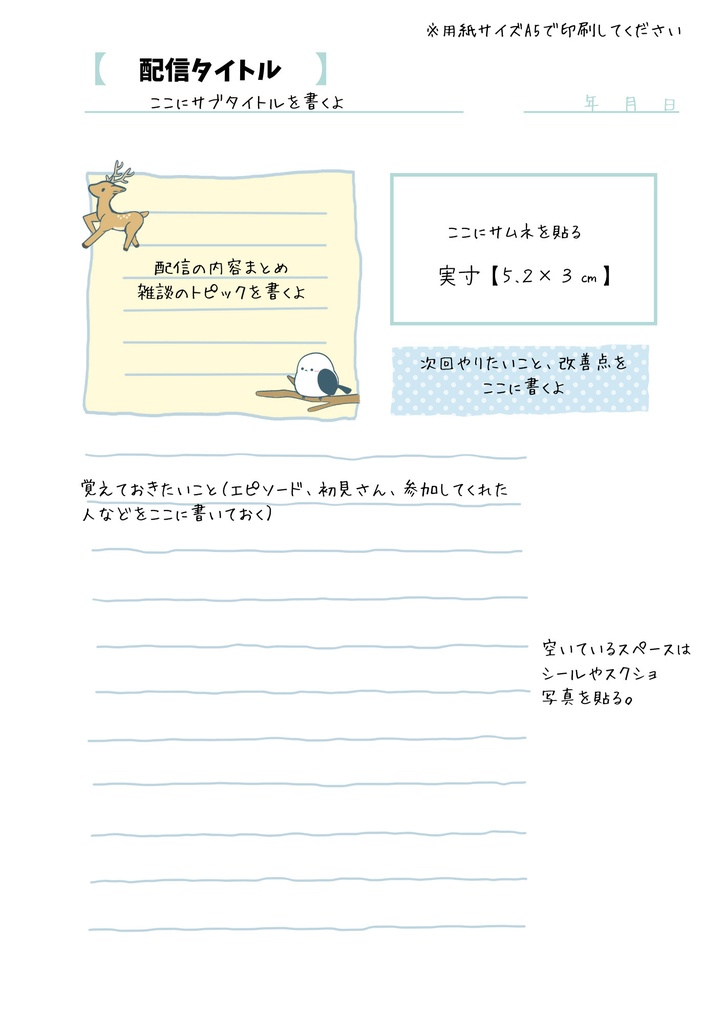 ※用紙サイズA5で印刷してください
【 配信タイトル 】
ここにサブタイトルを書くよ
年 月 日
配信の内容まとめ
雑談のトピックを書くよ
ここにサムネを貼る
実寸【5.2×3cm】
次回やりたいこと、改善点を
ここに書くよ
覚えておきたいこと(エピソード、初見さん、参加してくれた
人などをここに書いておく)
空いているスペースは
シールやスクショ
写真を貼る。